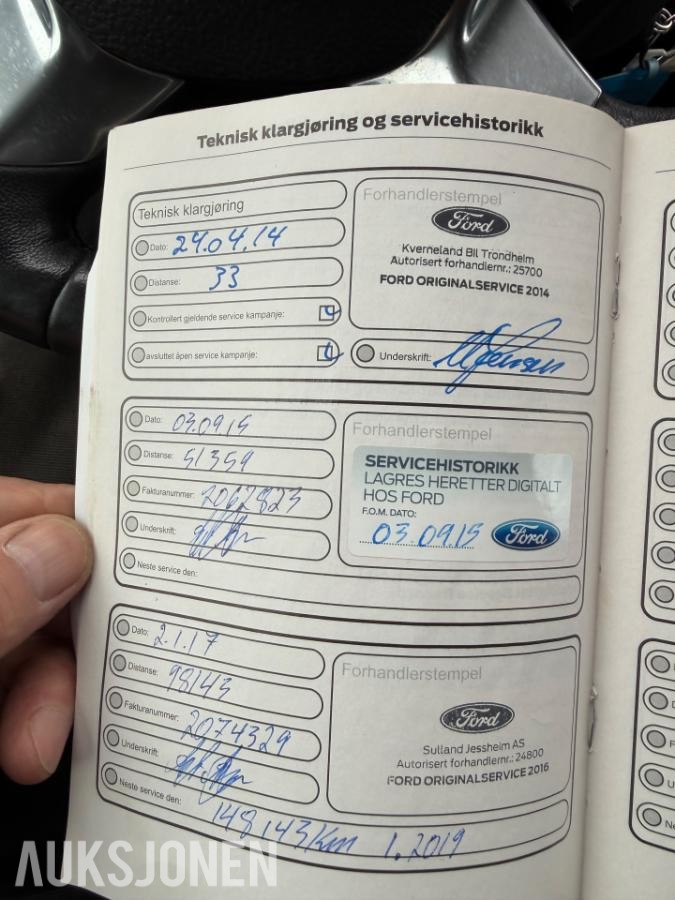 Teknisk klargjøring og servicehistorikk
Teknisk klargjøring
Dato: 24.04.14
Distanse: 33
Kontrollert gjeldende service kampanje:
avsluttet åpen service kampanje:
Forhandlerstempel
Ford
Kverneland Bil Trondheim
Autorisert forhandlernr.: 25700
FORD ORIGINALSERVICE 2014
Underskrift:
Dato: 03.09.15
Distanse: 51359
Fakturanummer: 2062823
Underskrift:
Neste service den:
Forhandlerstempel
SERVICEHISTORIKK
LAGRES HERETTER DIGITALT
HOS FORD
F.O.M. DATO:
03.09.15
Ford
Dato: 2.1.17
Distanse: 98143
Fakturanummer: 2074329
Underskrift:
Neste service den: 148143 Km 1.2019
Forhandlerstempel
Ford
Sulland Jessheim AS
Autorisert forhandlernr.: 24800
FORD ORIGINALSERVICE 2016
D
F
U
Ne
AUKSJONEN